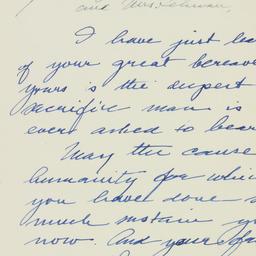 and Mrs. Lehman,
I have just lea
of your great bereave
yours is the deepest
sacrifice man is
ever asked to bear
May the cause
humanity for which
you have done s
much sustain y
now. And your fa